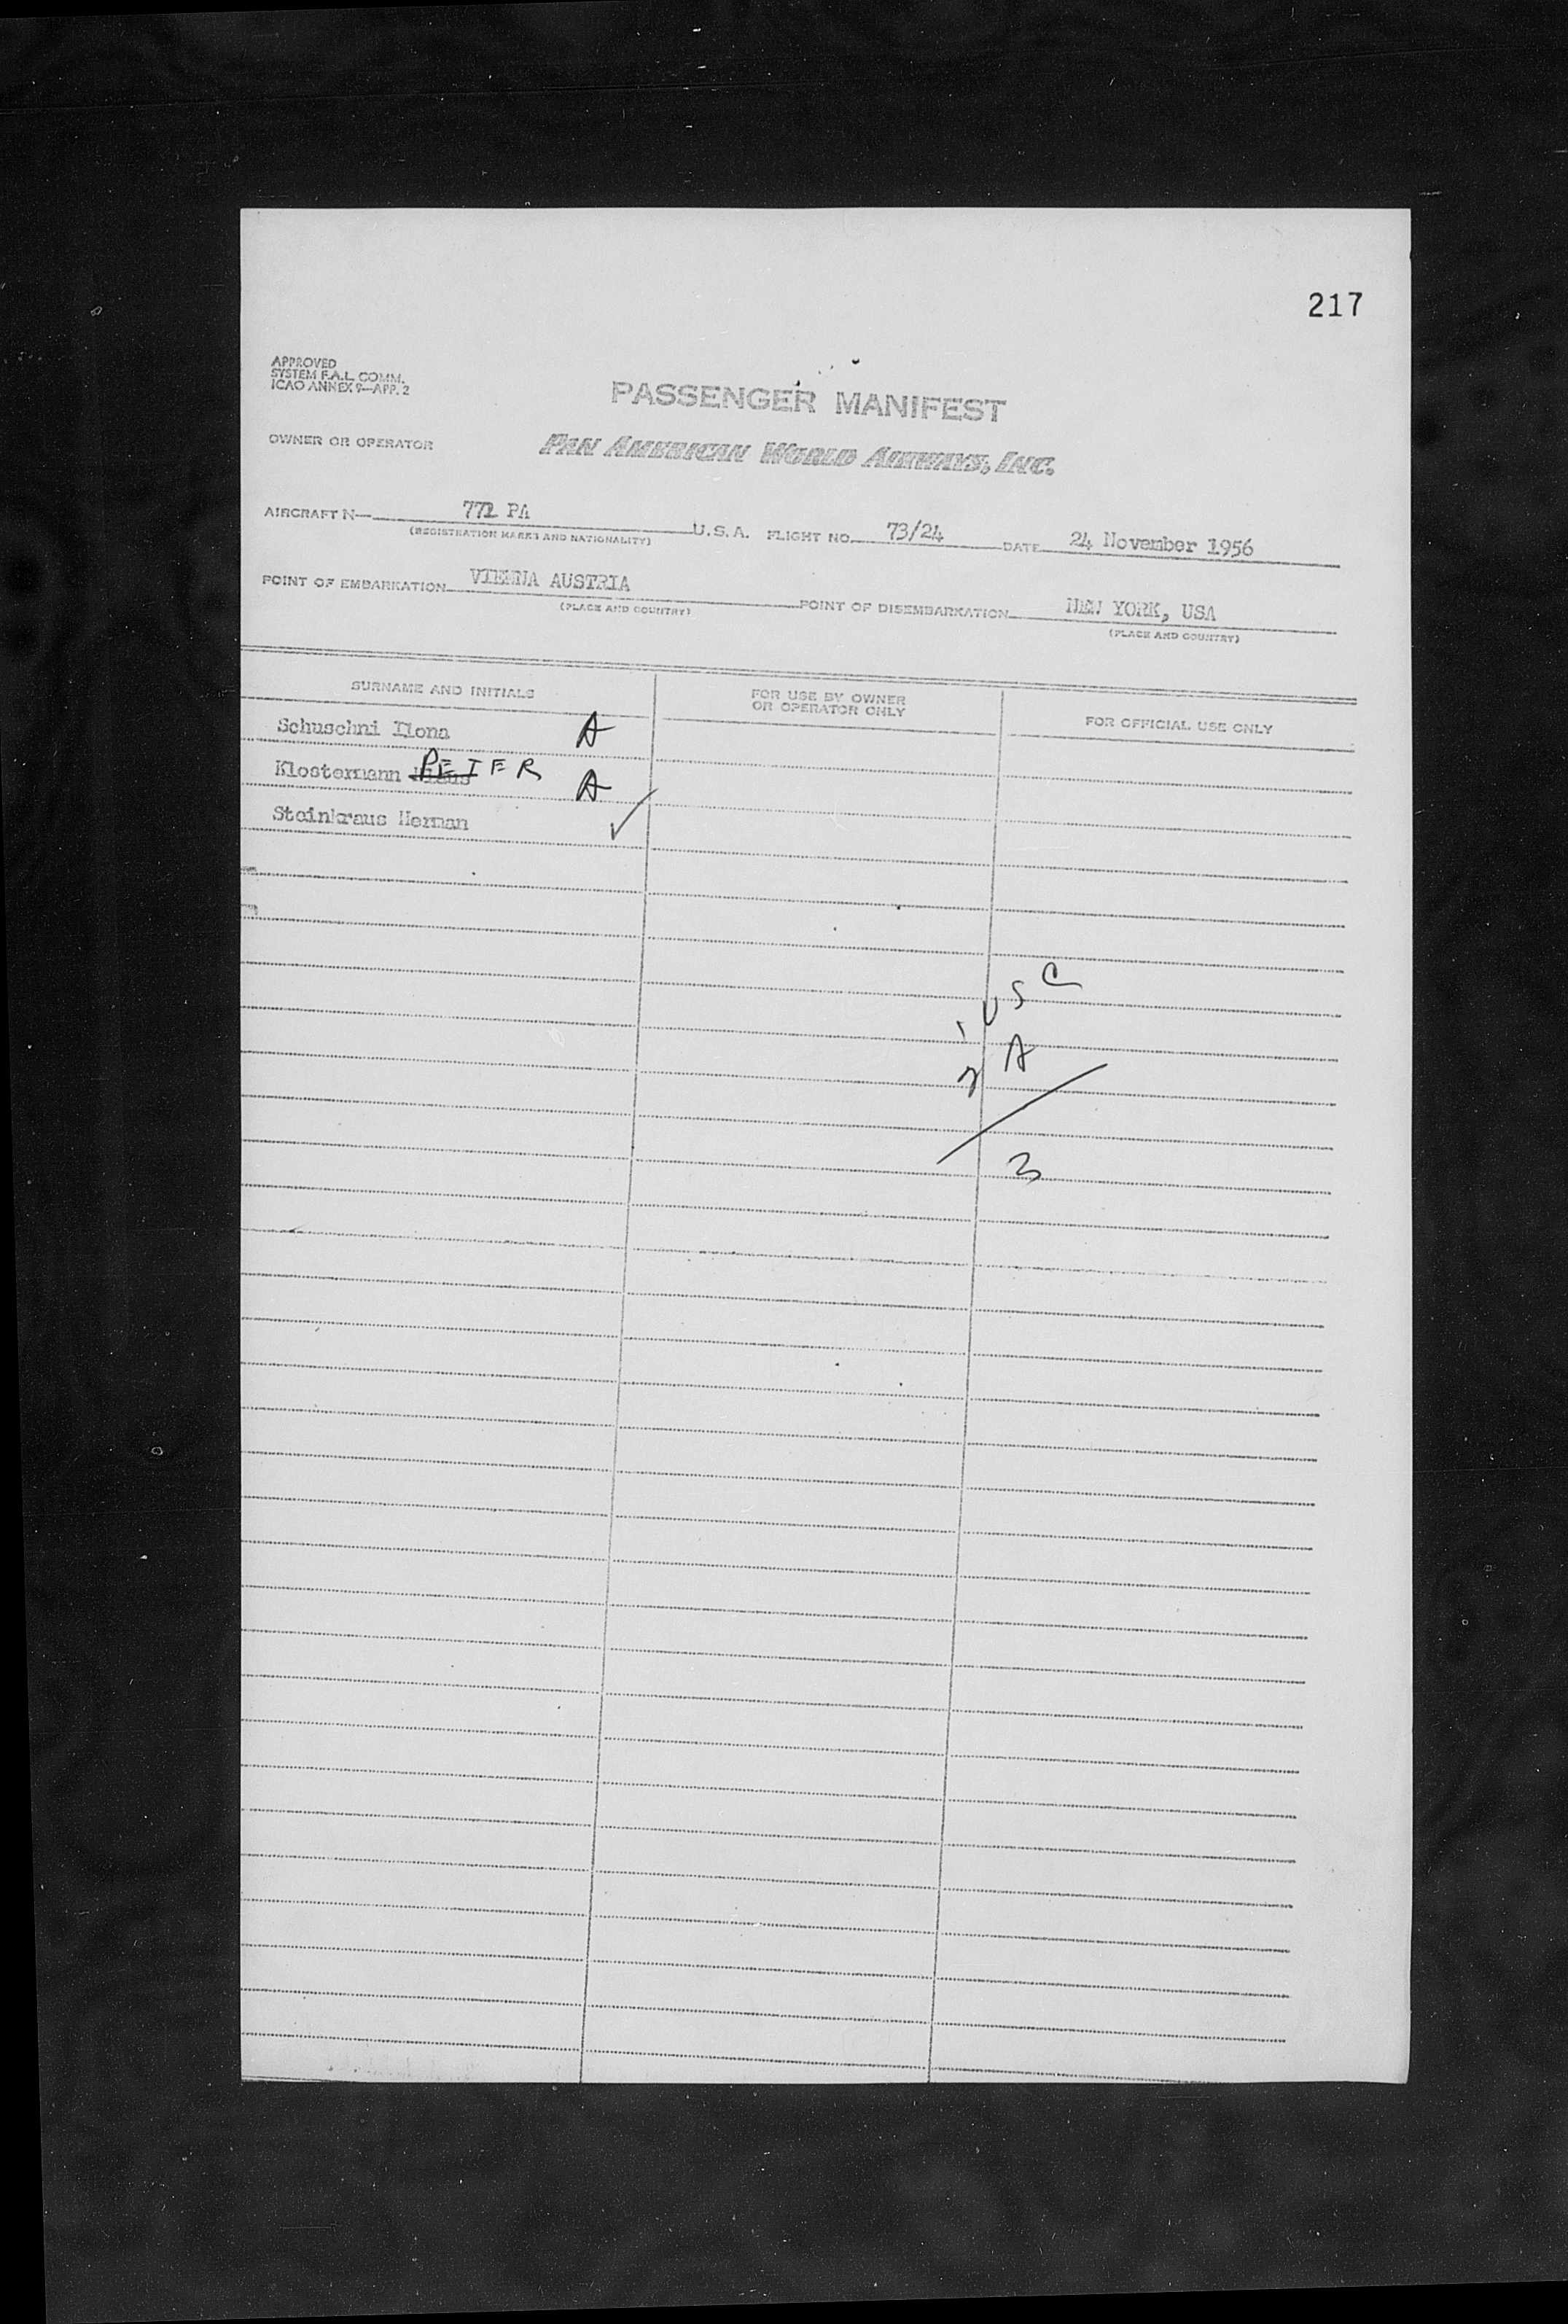 217
APPROVED
SYSTEM F.A.L. COMM.
ICAO ANNEX 9—APP. 2
PASSENGER MANIFEST
OWNER OR OPERATOR PAN AMERICAN WORLD AIRWAYS, INC.
AIRCRAFT N— PA U.S.A. FLIGHT NO. 73/24 DATE 24 November 1956
(REGISTRATION MARKS AND NATIONALITY)
POINT OF EMBARKATION VIENNA AUSTRIA POINT OF DISEMBARKATION NEW YORK, USA
(PLACE AND COUNTRY) (PLACE AND COUNTRY)
SURNAME AND INITIALS FOR USE BY OWNER OR OPERATOR ONLY FOR OFFICIAL USE ONLY
Schuschni Ilona A
Klostermann PETER A
Steinkraus Herman ✓
1 USC
2 A
3